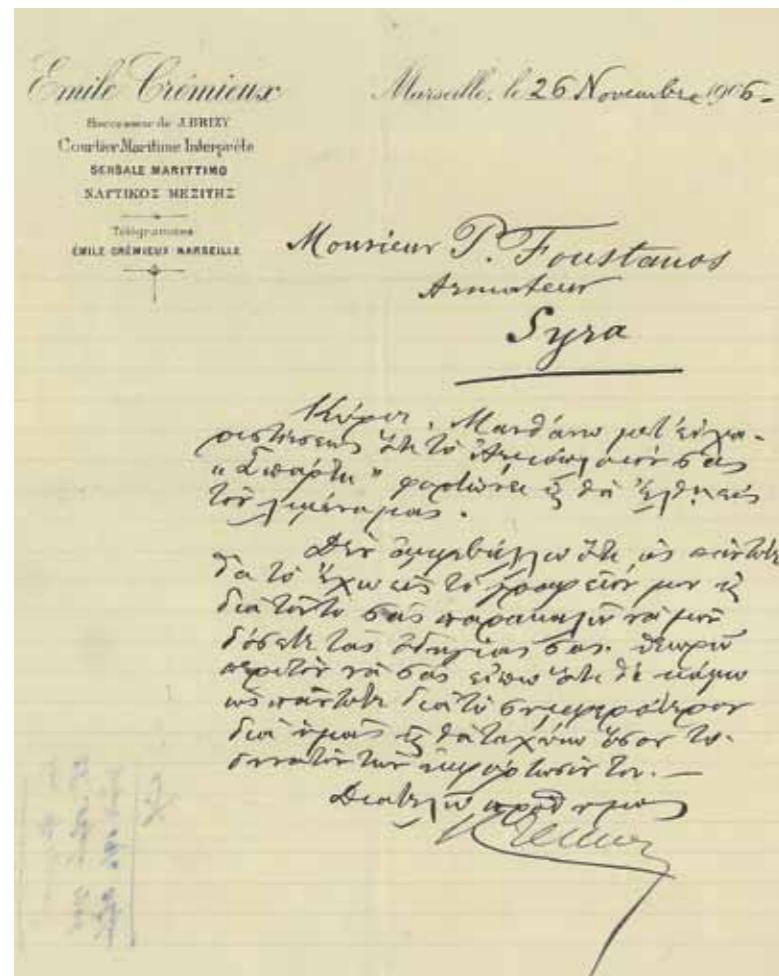 Emile Crémieux
Successeur de J. BRIZY
Courtier Maritime Interprète
SENSALE MARITTIMO
ΝΑΥΤΙΚΟΣ ΜΕΣΙΤΗΣ
Télégrammes
ÉMILE CRÉMIEUX MARSEILLE
Marseille, le 26 Novembre 1906
Monsieur P. Foustanos
Armateur
Syra
Κύριε, Μανθάνω μετ' εὐχα-
ριστήσεως ὅτι τὸ Ἀτμόπλοιόν σας
"Σπάρτη" φορτώνει ϗ θὰ ἔλθῃ εἰς
τὸν λιμένα μας.
Δὲν ἀμφιβάλλω ὅτι, ὡς πάντοτε
θὰ τὸ ἔχω εἰς τὸ γραφεῖόν μου ϗ
διὰ τοῦτο σᾶς παρακαλῶ νὰ μοὶ
δόσετε τὰς ὁδηγίας σας. Θεωρῶ
περιτὸν νὰ σᾶς εἴπω ὅτι θὰ κάμω
ὡς πάντοτε διὰ τὸ συμφερότερον
διὰ ὑμᾶς ϗ θὰ ταχύνω ὅσον τὸ
δυνατὸν τὴν ἐκφόρτωσίν του. —
Διατελῶ προθύμως